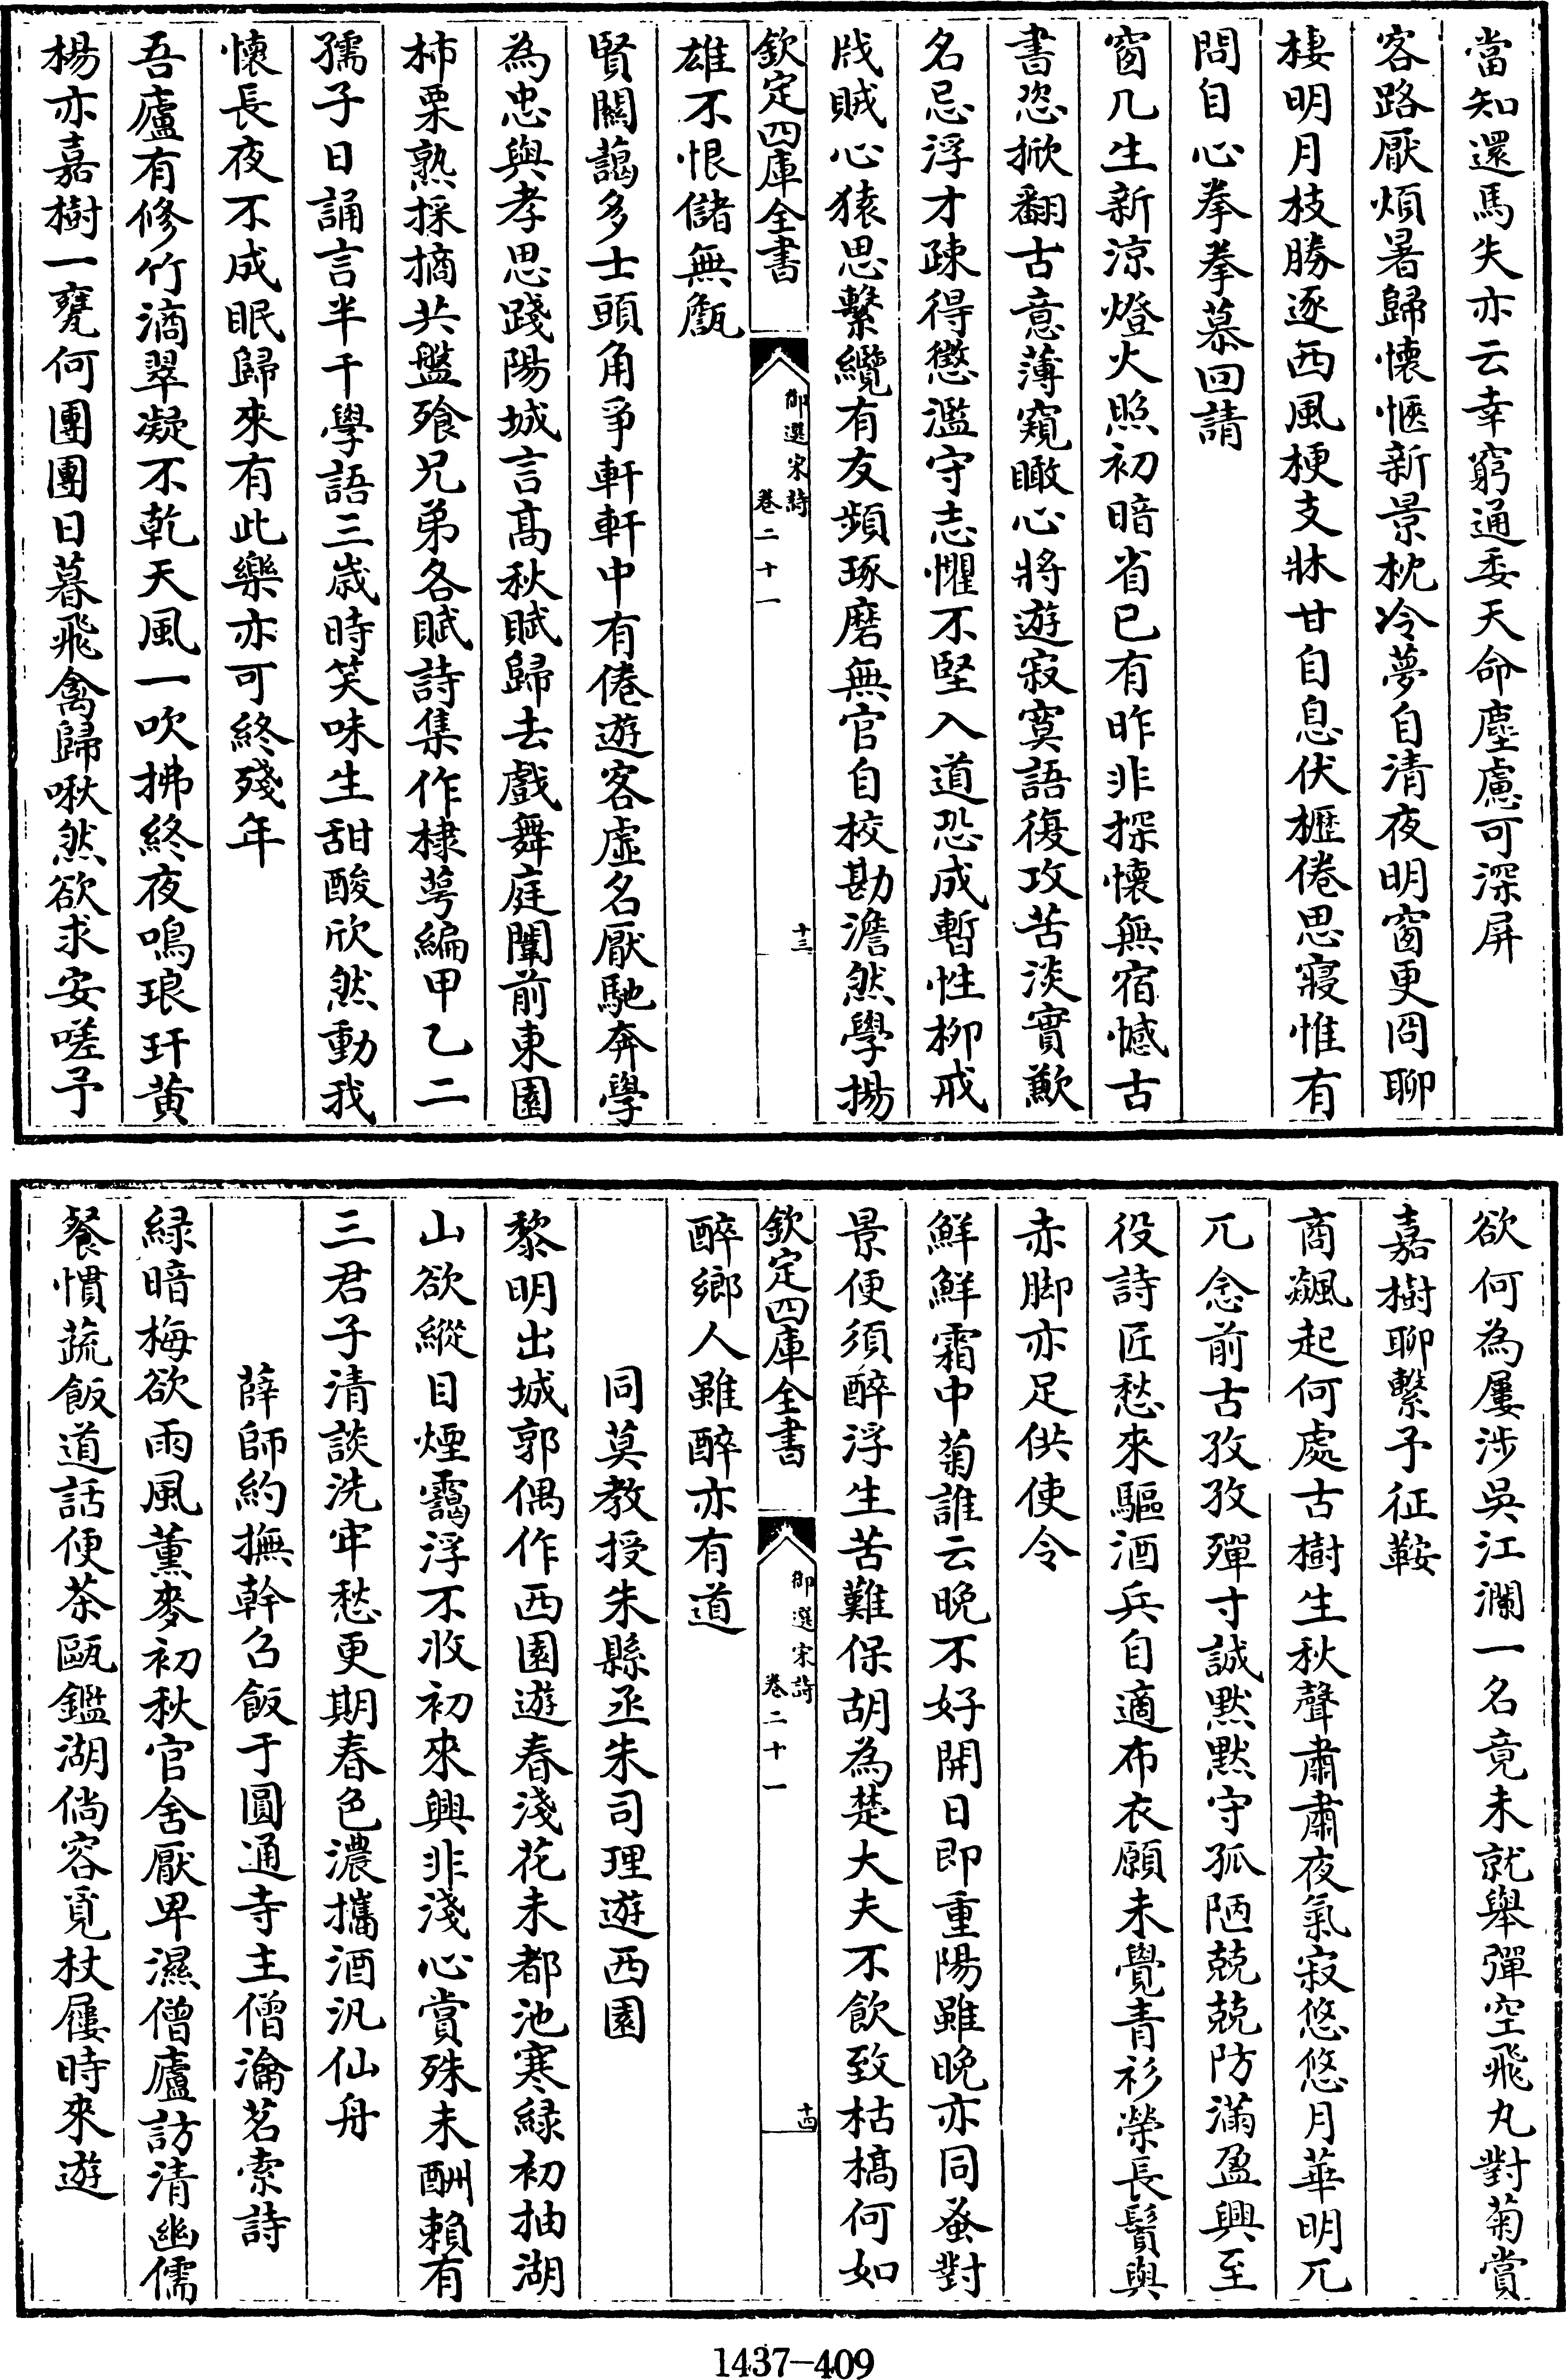 當知還馬失亦云幸窮通委天命塵慮可深屏
客路厭煩暑歸懷愜新景枕冷夢自清夜明窗更冏聊
棲明月枝勝逐西風梗支牀甘自息伏櫪倦思寢惟有
問自心拳拳慕回請
窗几生新涼燈火照初暗省已有昨非探懷無宿憾古
書恣掀翻古意薄窺瞰心將遊寂寞語復攻苦淡實歉
名忌浮才疎得懲濫守志懼不堅入道恐成暫性柳戒
戕賊心猿思繫纜有友頻琢磨無官自校勘澹然學揚
欽定四庫全書
御選宋詩
卷二十一
十三
雄不恨儲無甔
賢關藹多士頭角爭軒軒中有倦遊客虛名厭馳奔學
為忠與孝思踐陽城言高秋賦歸去戲舞庭闈前東園
柿栗熟採摘共盤飱兄弟各賦詩集作棣萼編甲乙二
孺子日誦言半千學語三歲時笑味生甜酸欣然動我
懷長夜不成眠歸來有此樂亦可終殘年
吾廬有修竹滴翠凝不乾天風一吹拂終夜鳴琅玕黃
楊亦嘉樹一甕何團團日暮飛禽歸啾然欲求安嗟予
欲何為屢涉吳江瀾一名竟未就舉彈空飛丸對菊賞
嘉樹聊繫予征鞍
商飆起何處古樹生秋聲肅肅夜氣寂悠悠月華明兀
兀念前古孜孜殫寸誠默默守孤陋兢兢防滿盈興至
役詩匠愁來驅酒兵自適布衣願未覺青衫榮長鬚與
赤脚亦足供使令
鮮鮮霜中菊誰云晚不好開日即重陽雖晚亦同蚤對
景便須醉浮生苦難保胡為楚大夫不飲致枯槁何如
欽定四庫全書
御選宋詩
卷二十一
十四
醉鄉人雖醉亦有道
同莫教授朱縣丞朱司理遊西園
黎明出城郭偶作西園遊春淺花未都池寒綠初抽湖
山欲縱目煙靄浮不收初來興非淺心賞殊未酬賴有
三君子清談洗牢愁更期春色濃攜酒汎仙舟
薛師約撫幹召飯于圓通寺主僧瀹茗索詩
緑暗梅欲雨風薰麥初秋官舍厭卑濕僧廬訪清幽儒
餐慣蔬飯道話便茶甌鑑湖倘容覓杖屨時來遊
1437-409